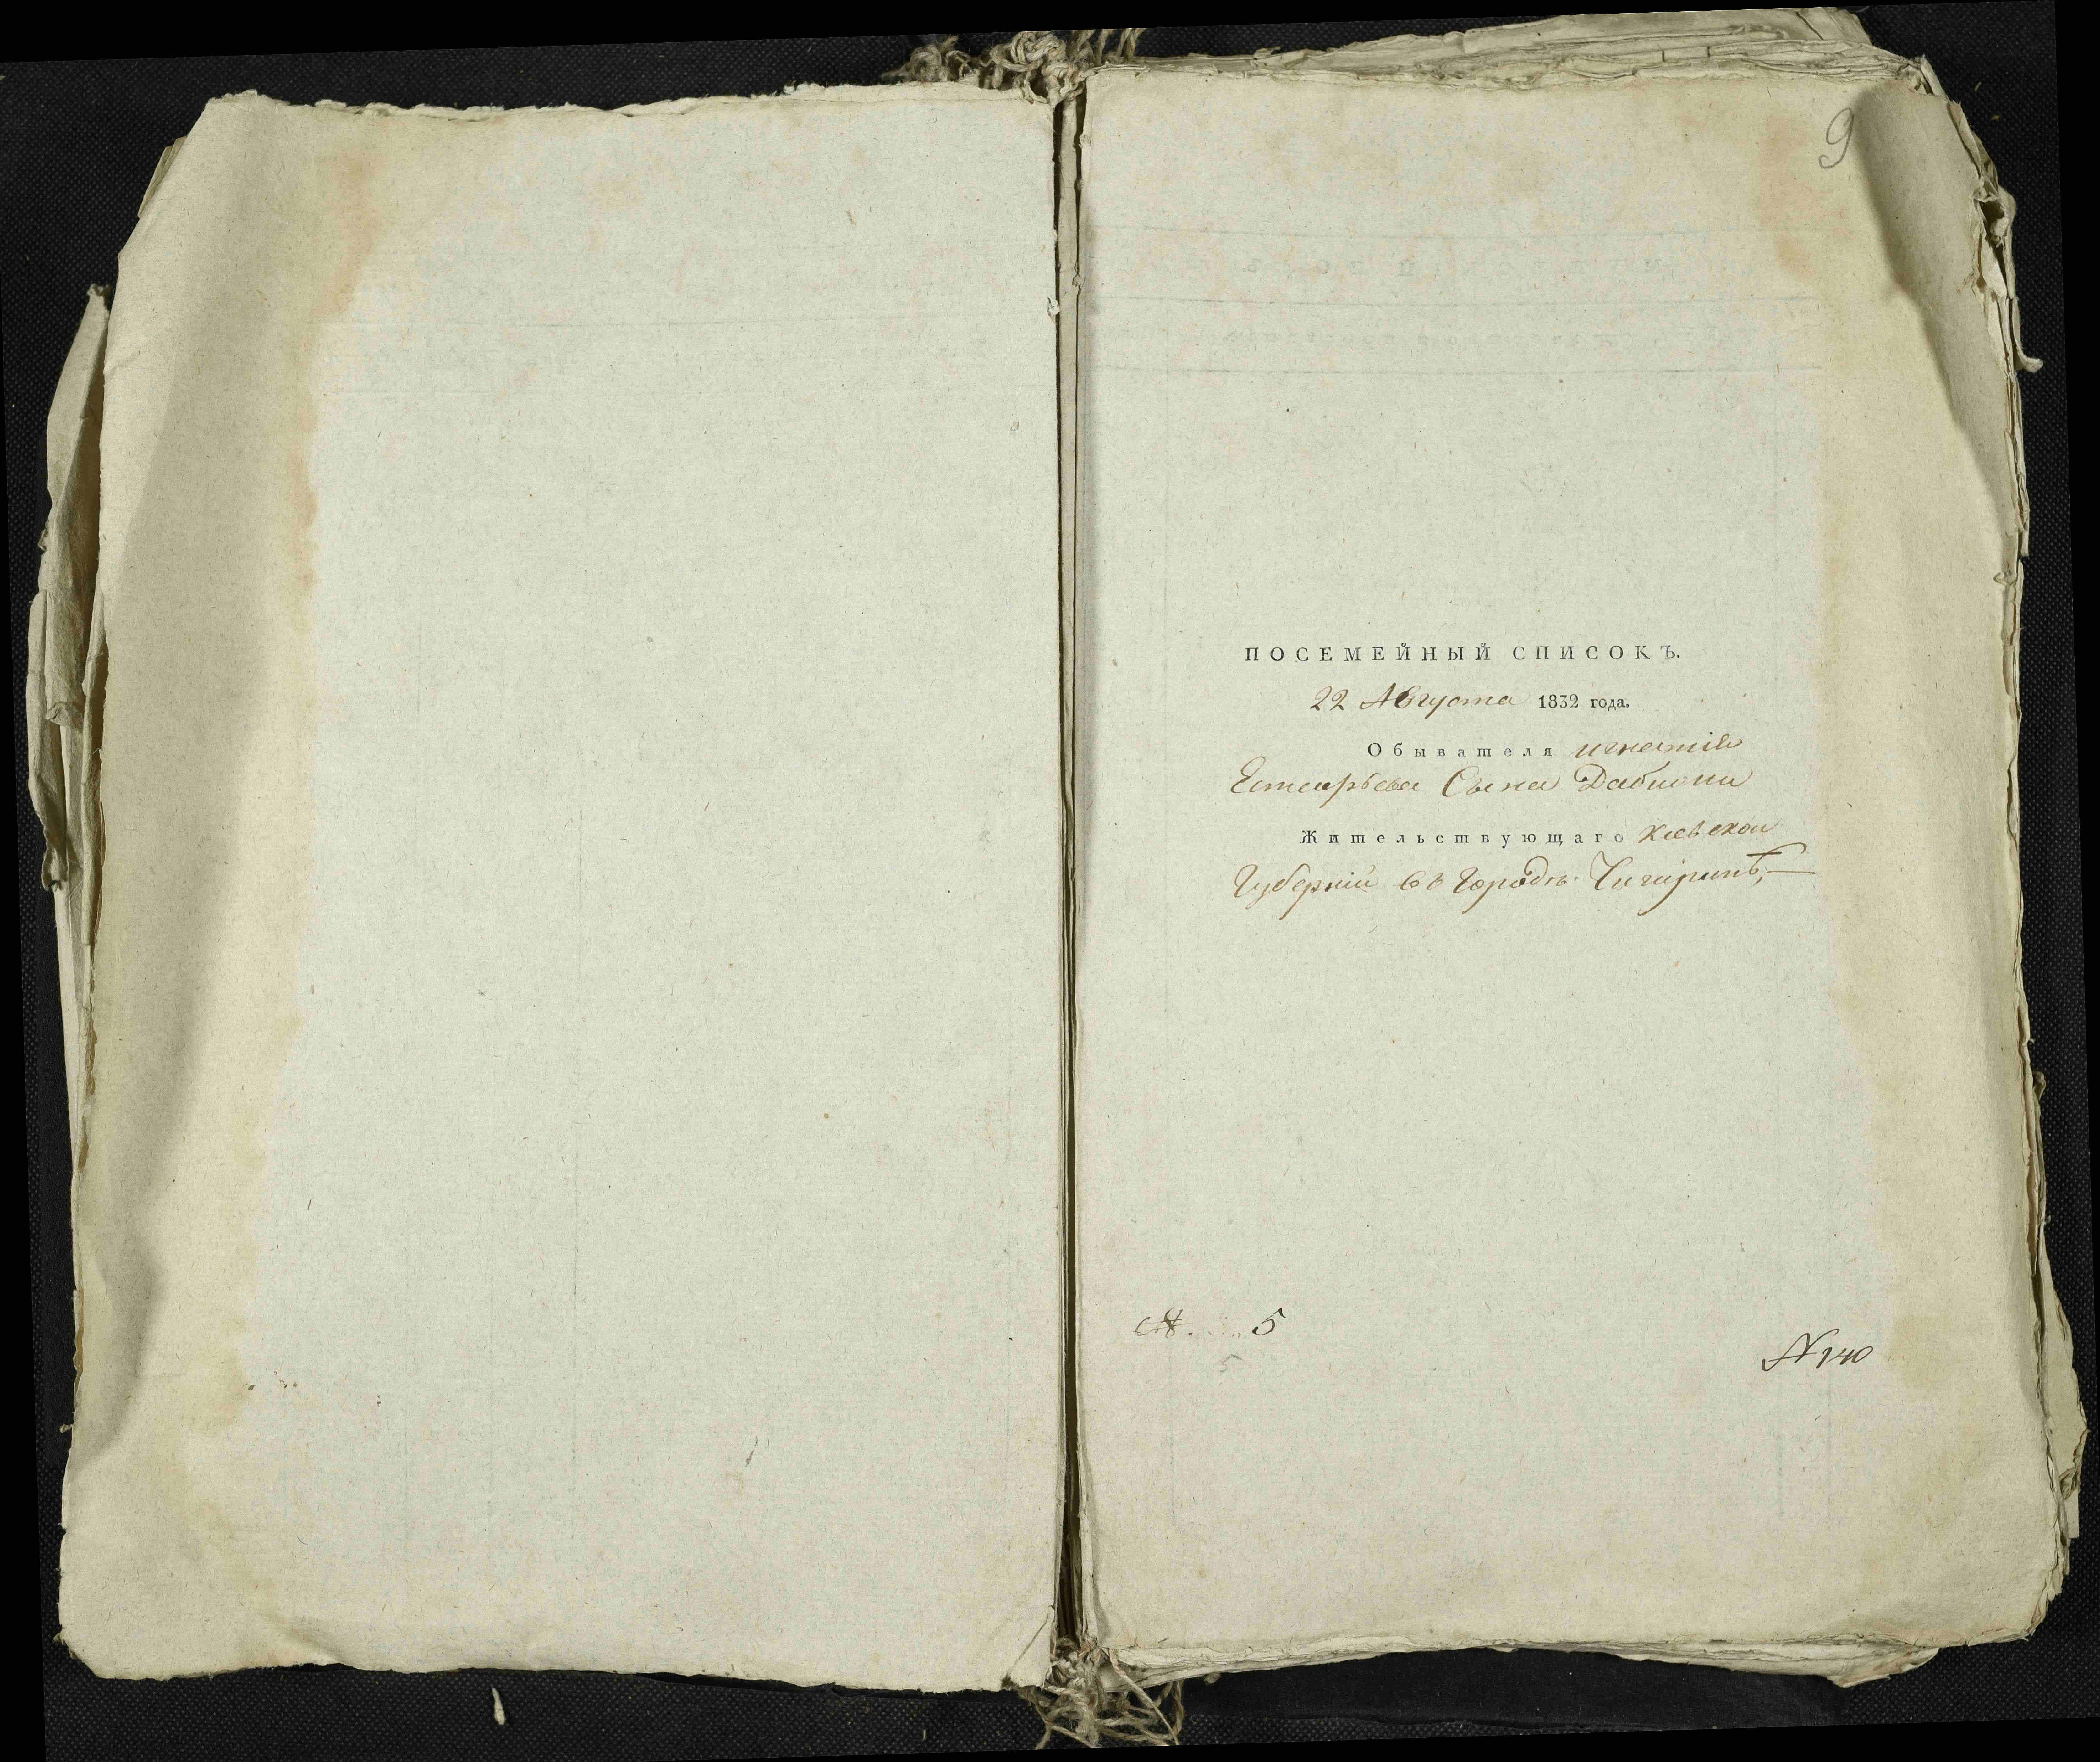 9
ПОСЕМЕЙНЫЙ СПИСОКЪ.
22 Августа 1832 года.
Обывателя игнатія
Сына
Жительствующаго Кіевской
Губерніи въ Городѣ Чигиринѣ,
5
5
N 140